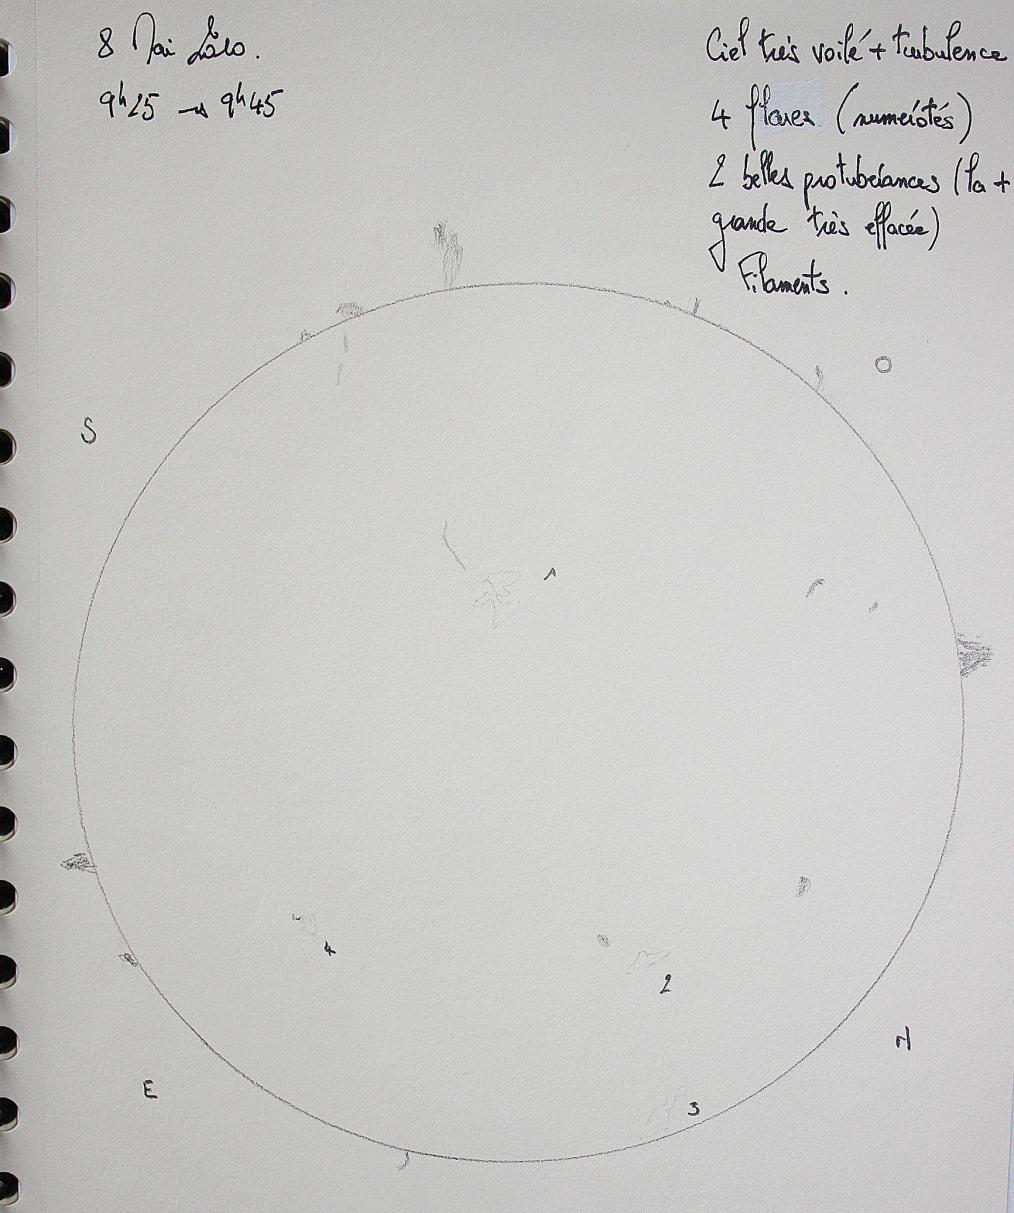 8 Mai 2010.
9h25 → 9h45
Ciel très voilé + turbulence
4 flares (numérotés)
2 belles protubérances (la +
grande très effacée)
Filaments.
O
S
1
4
2
N
E
3